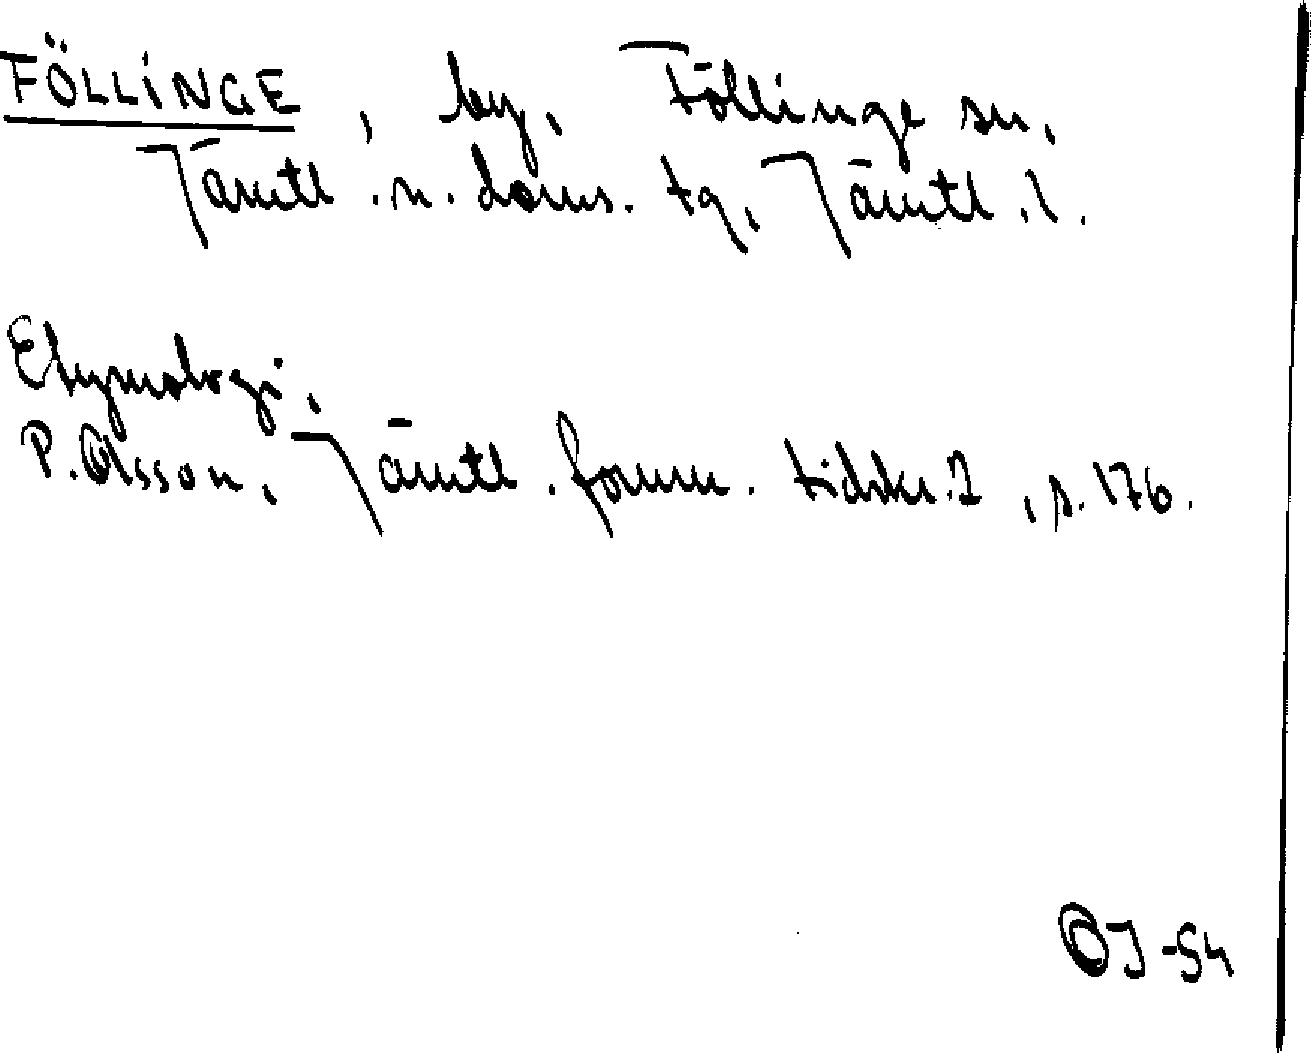 FÖLLINGE, by, Föllinge sn,
Jämtl. n. doms. tg, Jämtl. l.
Etymologi,
P. Olsson, Jämtl. fornm. tidskr. 2, s. 176.
OJ -54